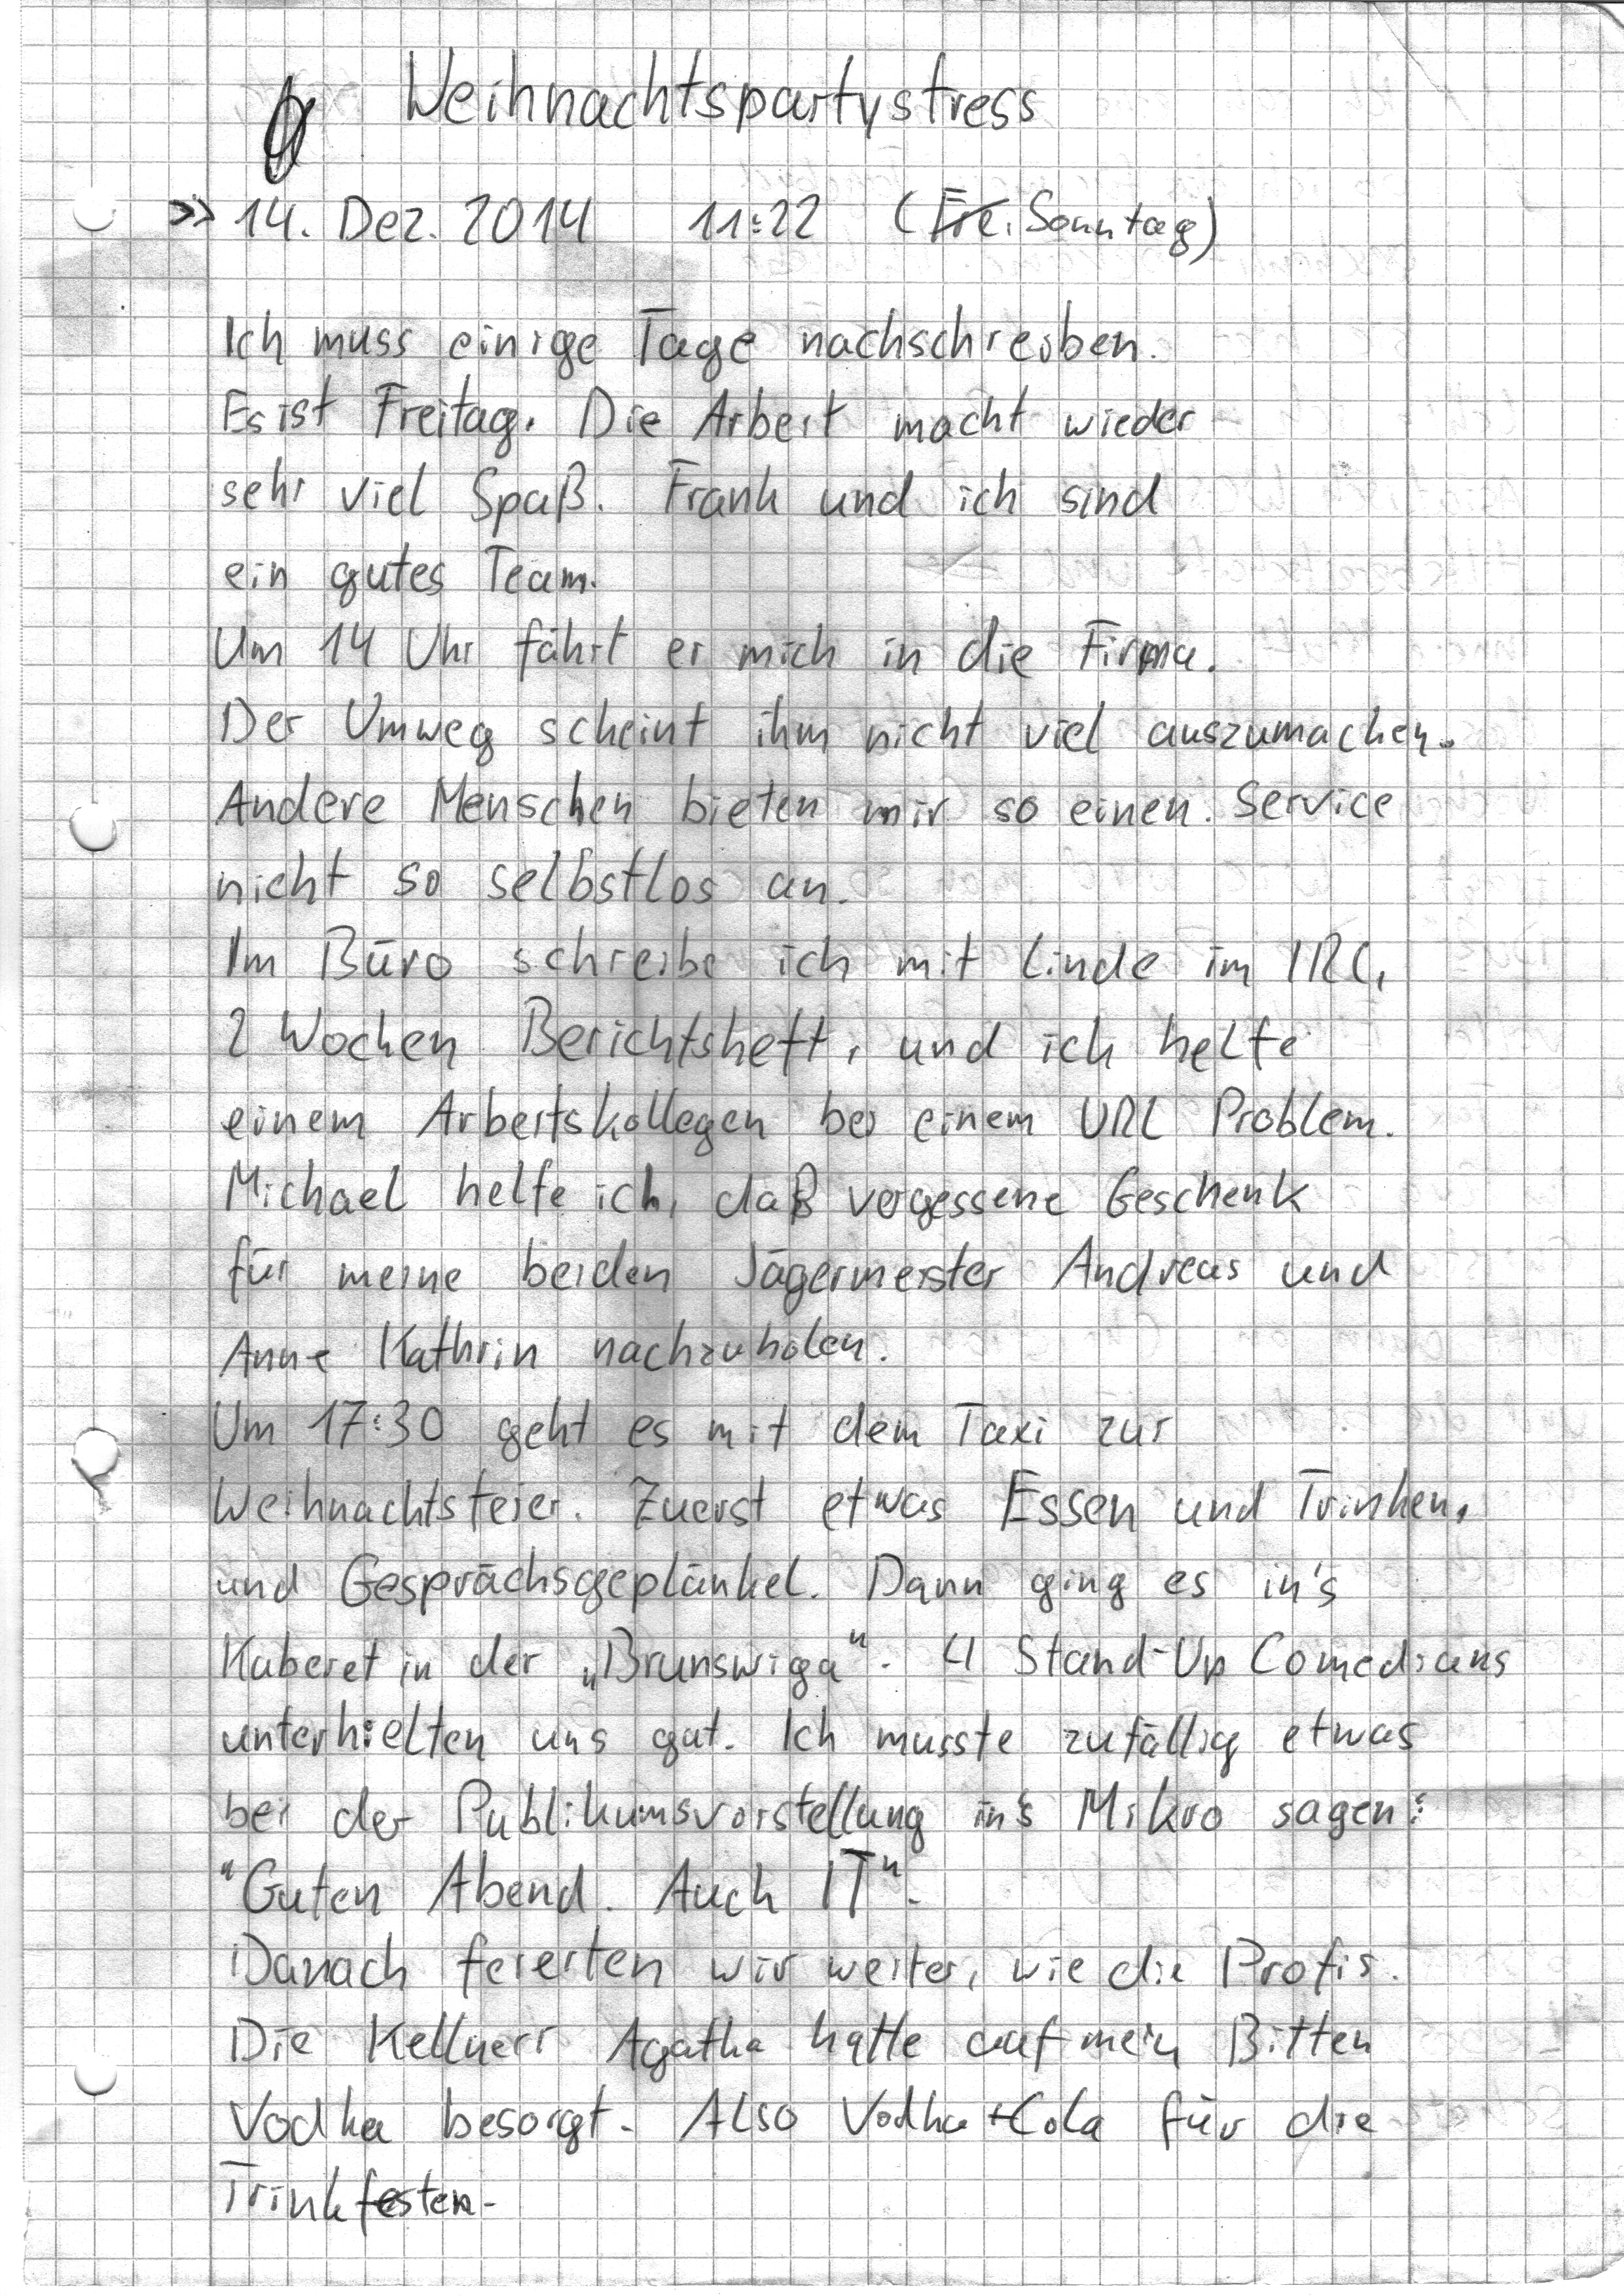 Weihnachtspartystress
>> 14. Dez. 2014 11:22 (Fre. Sonntag)
Ich muss einige Tage nachschreiben.
Es ist Freitag. Die Arbeit macht wieder
sehr viel Spaß. Frank und ich sind
ein gutes Team.
Um 14 Uhr fährt er mich in die Firma.
Der Umweg scheint ihm nicht viel auszumachen.
Andere Menschen bieten mir so einen Service
nicht so selbstlos an.
Im Büro schreibe ich mit Linde im IRC,
2 Wochen Berichtsheft, und ich helfe
einem Arbeitskollegen bei einem URL Problem.
Michael helfe ich, daß vergessene Geschenk
für meine beiden Jägermeister Andreas und
Anne Kathrin nachzuholen.
Um 17:30 geht es mit dem Taxi zur
Weihnachtsfeier. Zuerst etwas Essen und Trinken,
und Gesprächsgeplänkel. Dann ging es in's
Kaberet in der „Brunswiga". 4 Stand-Up Comedians
unterhielten uns gut. Ich musste zufällig etwas
bei der Publikumsvorstellung in's Mikro sagen:
"Guten Abend. Auch IT".
Danach feierten wir weiter, wie die Profis.
Die Kellnerr Agatha hatte auf mein Bitten
Vodka besorgt. Also Vodka+Cola für die
Trinkfesten.